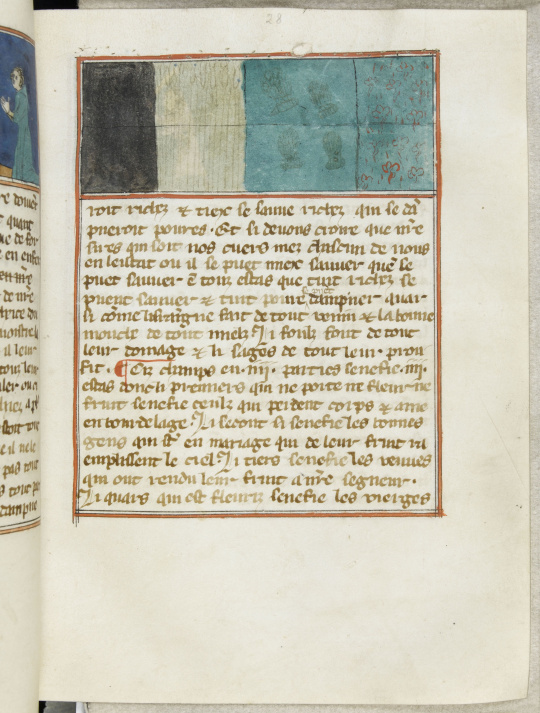 28
roit riches & tiex se sauve riches qui se dā
pneroit poures. Et si devons croire que nr̄e
sires qui soit nos cuers mez chascun de nous
en lestat ou il se puet miex sauver que se
puet sauver ē touz estas que tuit riches se
puent sauver & tuit poure dampner quar
si cōme
fait de tout venim & la bonne
mouche de tout miel. Li fouls font de tout
leur domage & li sages de tout leur prou
fit. Cis champs en .iiij. parties senefie .iiij.
estas donc li premiers qui ne porte ne fleur ne
fruit senefie ceulz qui perdent corps & ame
en
Li secont si senefie les bonnes
gens qui st̄ en mariage qui de leur fruit ra
emplissent le ciel. Li tiers senefie les veuves
qui ont rendu leur fruit a nr̄e segneur.
Li quars qui est fleuris senefie les vierges